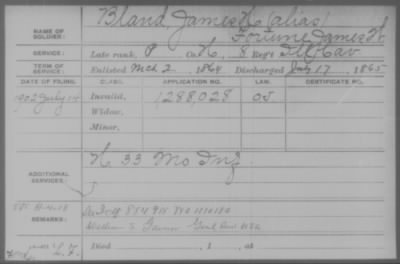 NAME OF SOLDIER: Bland James H (alias)
Fortune James W
SERVICE: Late rank, P Co. K, 8 Reg't Ill Cav
TERM OF SERVICE: Enlisted Mch 2, 1864 Discharged July 17, 1865
DATE OF FILING. CLASS. APPLICATION NO. LAW. CERTIFICATE NO.
1902 July 14 Invalid, 1288,028 OS
Widow,
Minor,
ADDITIONAL SERVICES: K 33 Mo Inf.
REMARKS:
William S.
Died , 1 , at